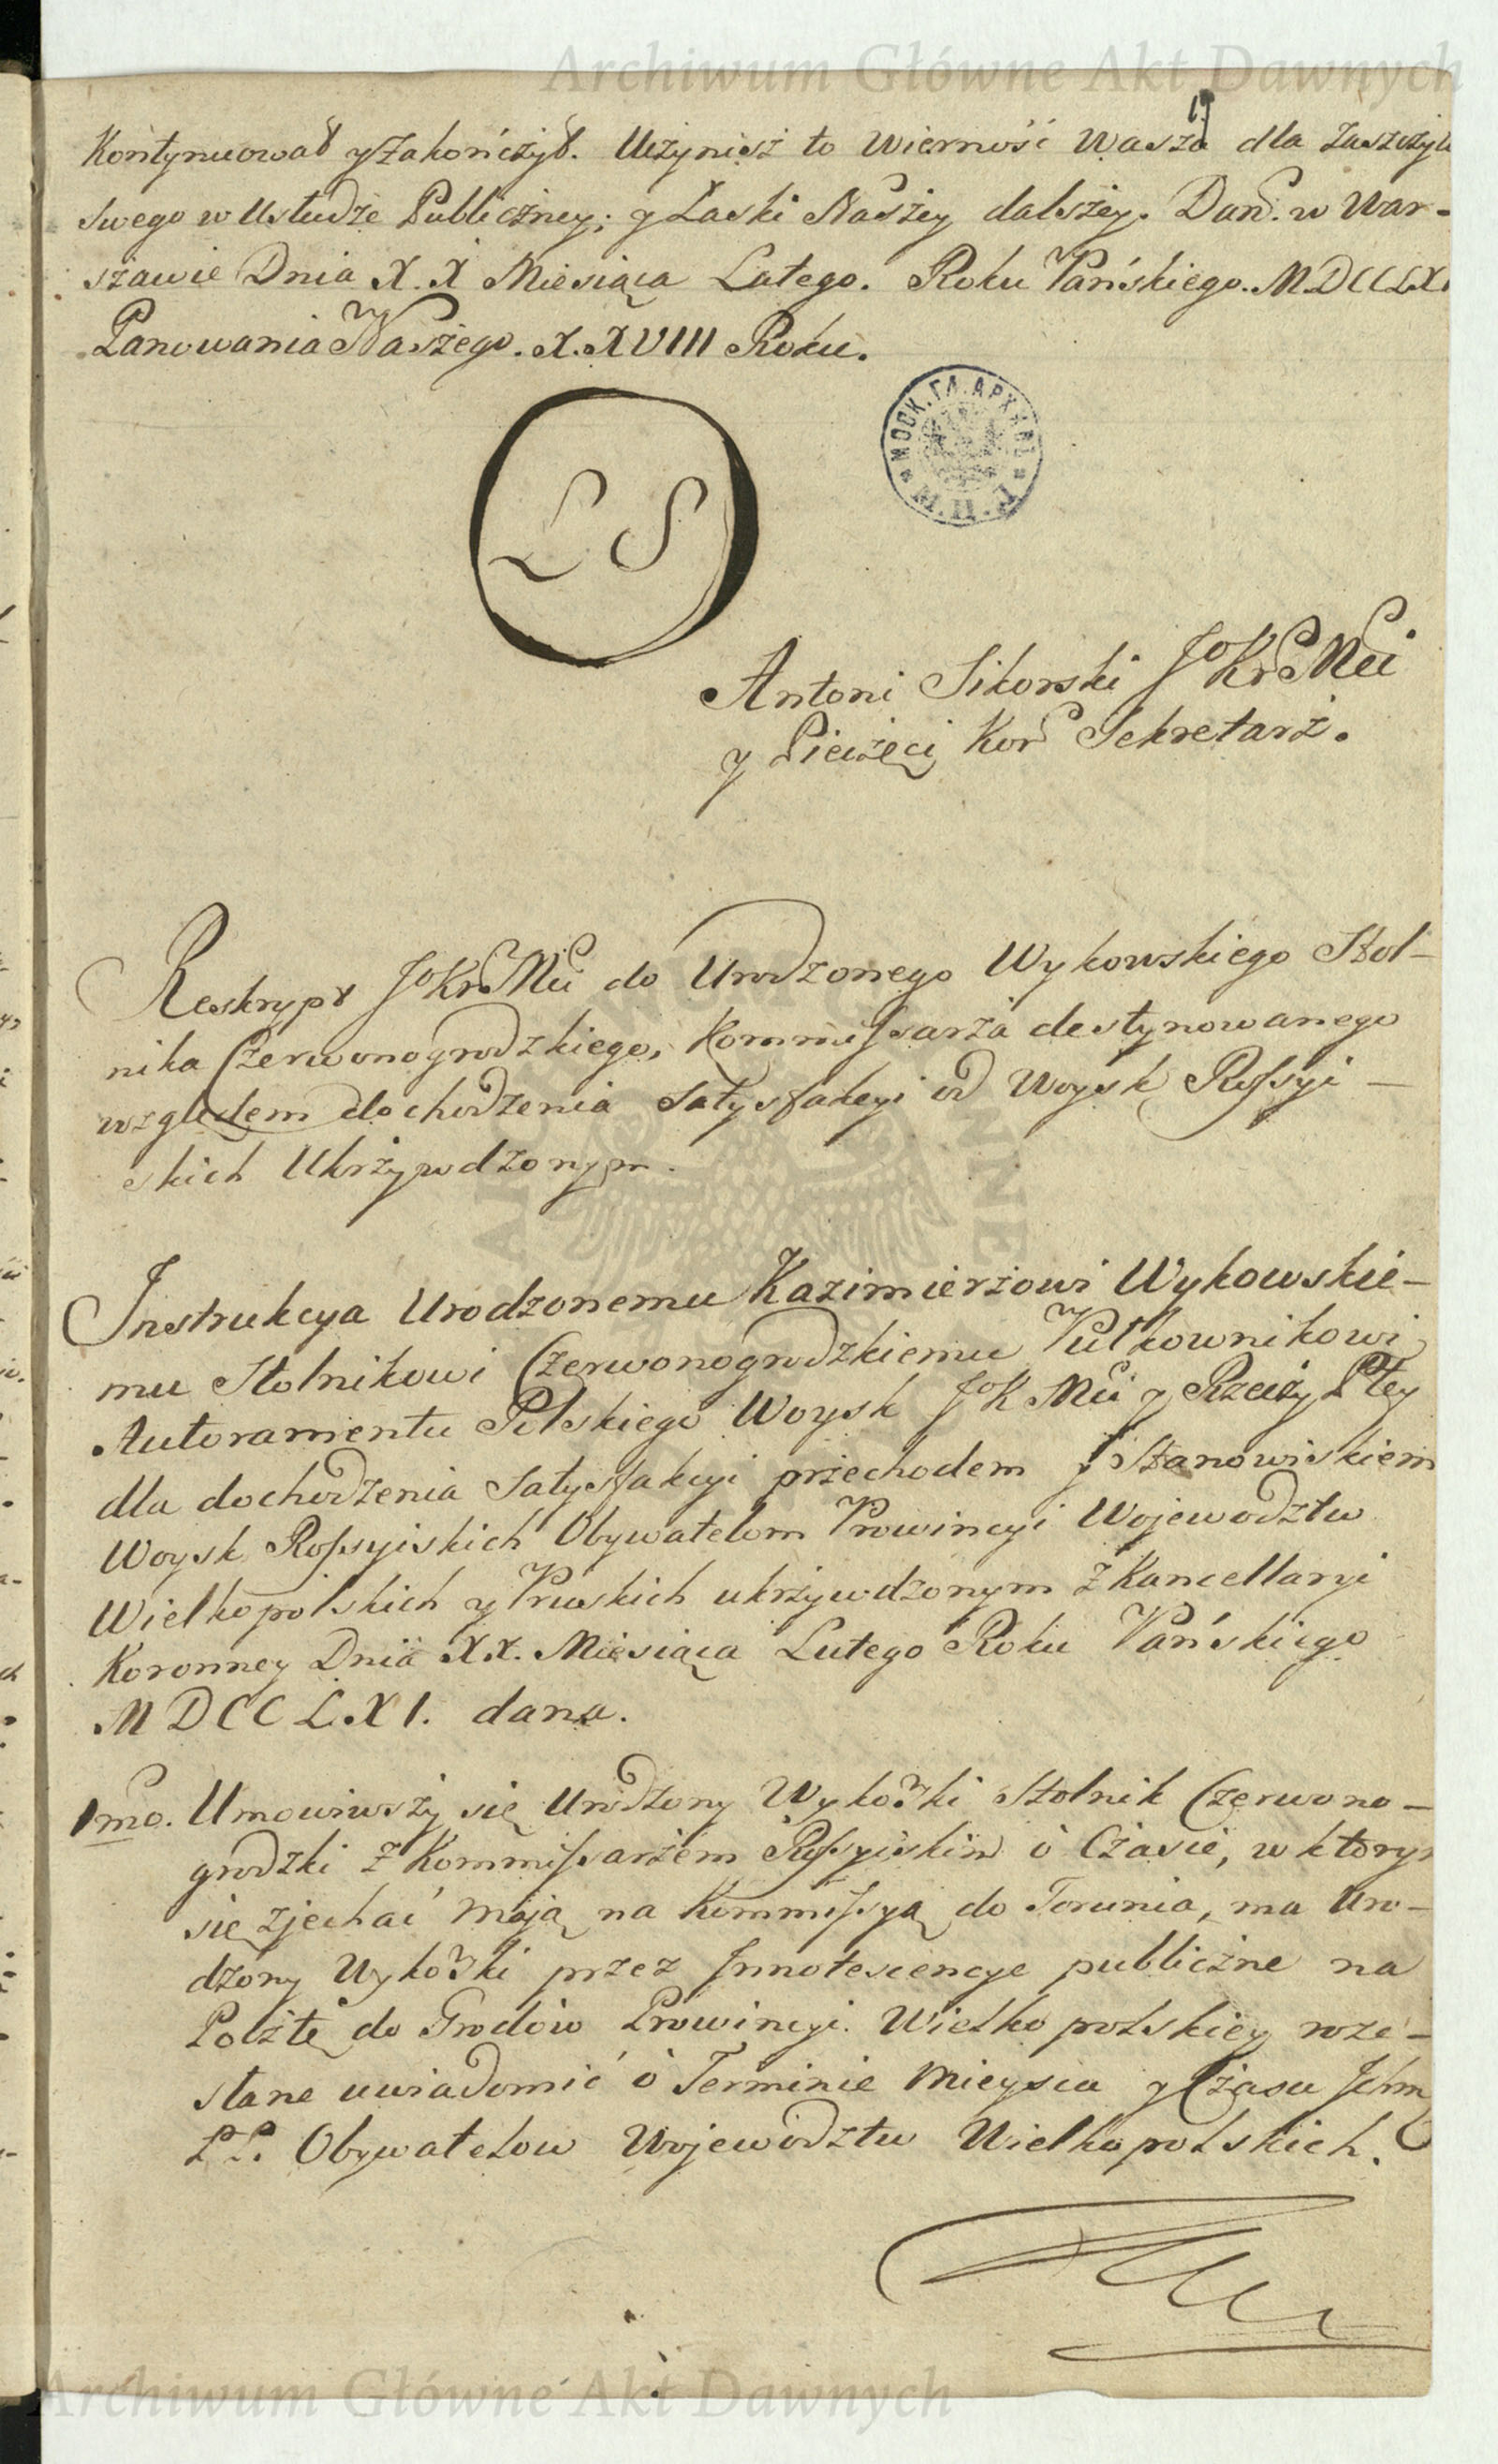 Archiwum Główne Akt Dawnych
Kontynuował y zakończył. Uczynisz to Wierność Wasza dla zaszczytu
swego w Usłudze Publiczney; y Łaski Naszey dalszey. Dan. w War-
szawie Dnia X.X Miesiąca Lutego. Roku Pańskiego. MDCCLXI
Panowania Naszego. X.XVIII Roku.
L S
МОСК. ГЛ. АРХИВЪ М.И.Д.
Antoni Sikorski JoKrMci
y Pieczęci Kor Sekretarz.
Reskrypt JoKrMci do Urodzonego Wykowskiego Stol-
nika Czerwonogrodzkiego, Kommissarza destynowanego
względem dochodzenia Satysfakcyi od Woysk Rossyi-
skich Ukrzywdzonym.
Instrukcya Urodzonemu Kazimierzowi Wykowskie-
mu Stolnikowi Czerwonogrodzkiemu Pułkownikowi
Autoramentu Polskiego Woysk JoK Mci y Rzeczy Pltey
dla dochodzenia Satysfakcyi przechodem y Stanowiskiem
Woysk Rossyiskich Obywatelom Prowincyi Wojewodztw
Wielkopolskich y Pruskich ukrzywdzonym z Kancellaryi
Koronney Dnia XX. Miesiąca Lutego Roku Pańskiego
MDCCLXI. dana.
1mo. Umowiwszy się Urodzony Wykowski Stolnik Czerwono-
grodzki z Kommissarzem Rossyiskim o Czasie, w którym
się zjechać mają na Kommissyą do Torunia, ma Uro-
dzony Wykowski przez Innotescencye publiczne na
Pocztę do Grodów Prowincyi Wielkopolskiey roze-
słane uwiadomić o Terminie Mieysca y Czasu Jchm
PP. Obywatelow Wojewodztw Wielkopolskich.
Archiwum Główne Akt Dawnych